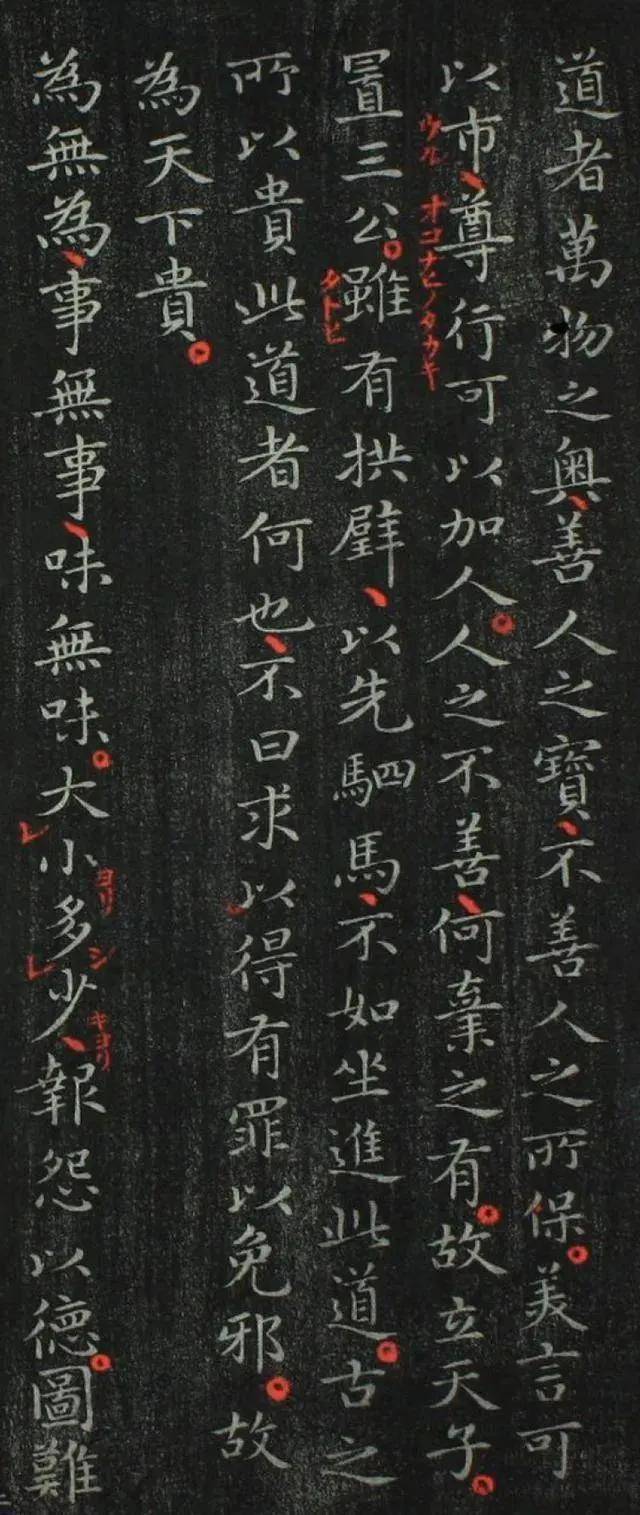 道者萬物之奧、善人之寶、不善人之所保。美言可
以市、尊行可以加人。人之不善、何棄之有。故立天子。
ウル
オコナヒノタカキ
置三公。雖有拱璧、以先駟馬、不如坐進此道。古之
タトヒ
所以貴此道者何也、不曰求以得有罪以免邪。故
為天下貴。
為無為、事無事、味無味。大レ小多レ少、報怨以德。圖難
ヨリ
シ
キヨリ